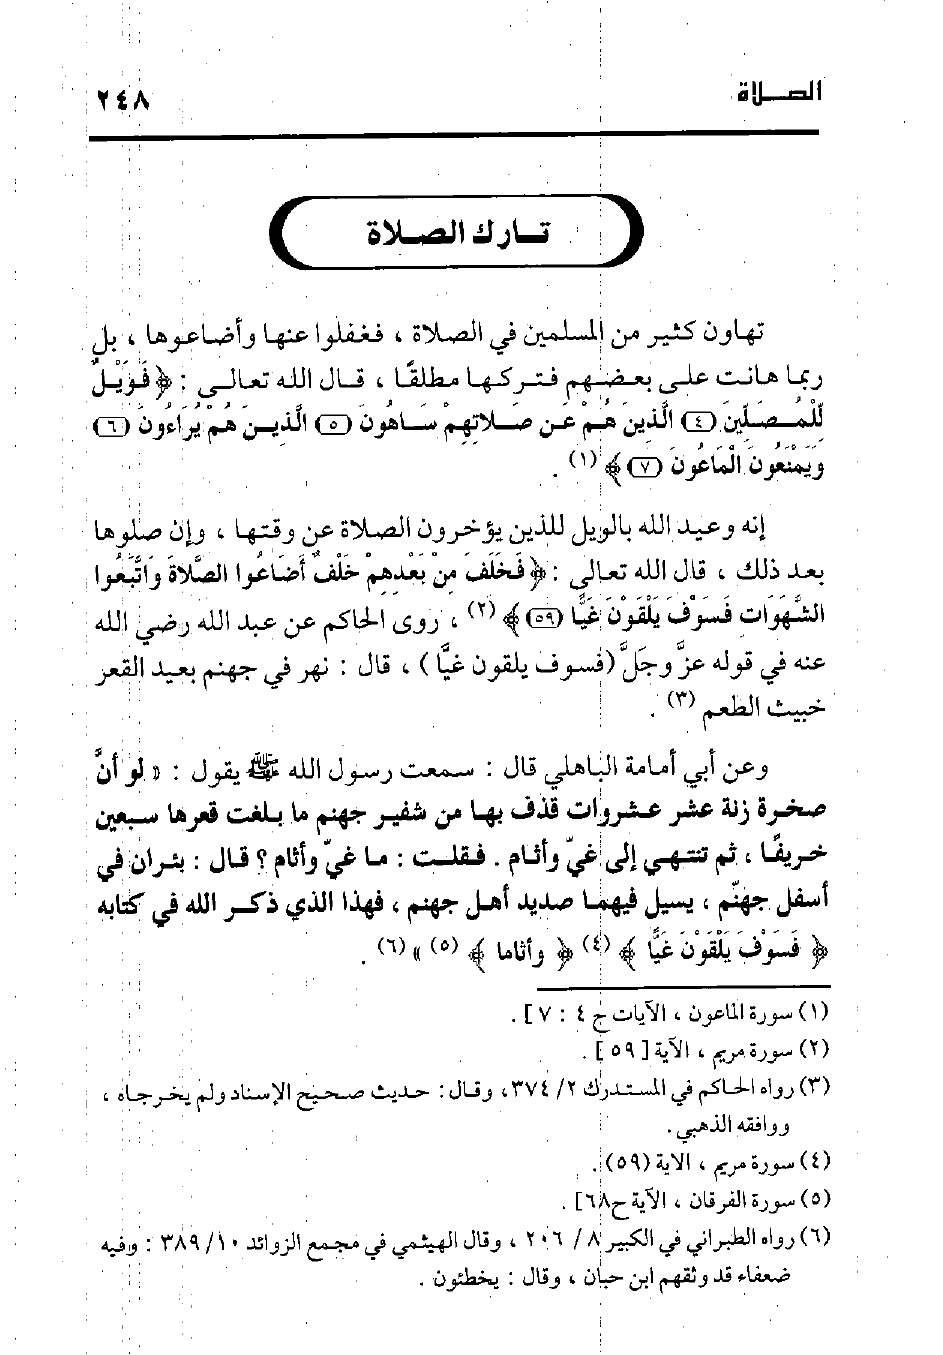 الصـلاة
٢٤٨
تـارك الصـلاة
تهاون كثير من المسلمين في الصلاة ، فغفلوا عنها وأضاعوها ، بل
ربما هانت على بعضهم فتركها مطلقًا ، قال الله تعالى : ﴿ فَوَيْلٌ
لِّلْمُصَلِّينَ (٤) الَّذِينَ هُمْ عَن صَلاتِهِمْ سَاهُونَ (٥) الَّذِينَ هُمْ يُرَاءُونَ (٦)
وَيَمْنَعُونَ الْمَاعُونَ (٧) ﴾ (١) .
إنه وعيد الله بالويل للذين يؤخرون الصلاة عن وقتها ، وإن صلوها
بعد ذلك ، قال الله تعالى : ﴿ فَخَلَفَ مِنْ بَعْدِهِمْ خَلْفٌ أَضَاعُوا الصَّلاةَ وَاتَّبَعُوا
الشَّهَوَاتِ فَسَوْفَ يَلْقَوْنَ غَيًّا (٥٩) ﴾ (٢) ، روى الحاكم عن عبد الله رضي الله
عنه في قوله عزَّ وجَلَّ (فسوف يلقون غيًّا ) ، قال : نهر في جهنم بعيد القعر
خبيث الطعم (٣) .
وعن أبي أمامة الباهلي قال : سمعت رسول الله ﷺ يقول : « لو أنَّ
صخرة زنة عشر عشروات قذف بها من شفير جهنم ما بلغت قعرها سبعين
خريفًا ، ثم تنتهي إلى غيّ وأثام . فقلت : ما غيّ وأثام ؟ قال : بئران في
أسفل جهنّم ، يسيل فيهما صديد أهل جهنم ، فهذا الذي ذكر الله في كتابه
﴿ فَسَوْفَ يَلْقَوْنَ غَيًّا ﴾ (٤) ﴿ وأثاما ﴾ (٥) » (٦) .
(١) سورة الماعون ، الآيات ج ٤ : ٧ ] .
(٢) سورة مريم ، الآية [ ٥٩ ] .
(٣) رواه الحاكم في المستدرك ٢/ ٣٧٤، وقال : حديث صحيح الإسناد ولم يخرجاه ،
ووافقه الذهبي .
(٤) سورة مريم ، الاية (٥٩) .
(٥) سورة الفرقان ، الآية ح٦٨] .
(٦) رواه الطبراني في الكبير ٨/ ٢٠٦ ، وقال الهيثمي في مجمع الزوائد ١٠/ ٣٨٩ : وفيه
ضعفاء قد وثقهم ابن حبان ، وقال : يخطئون .